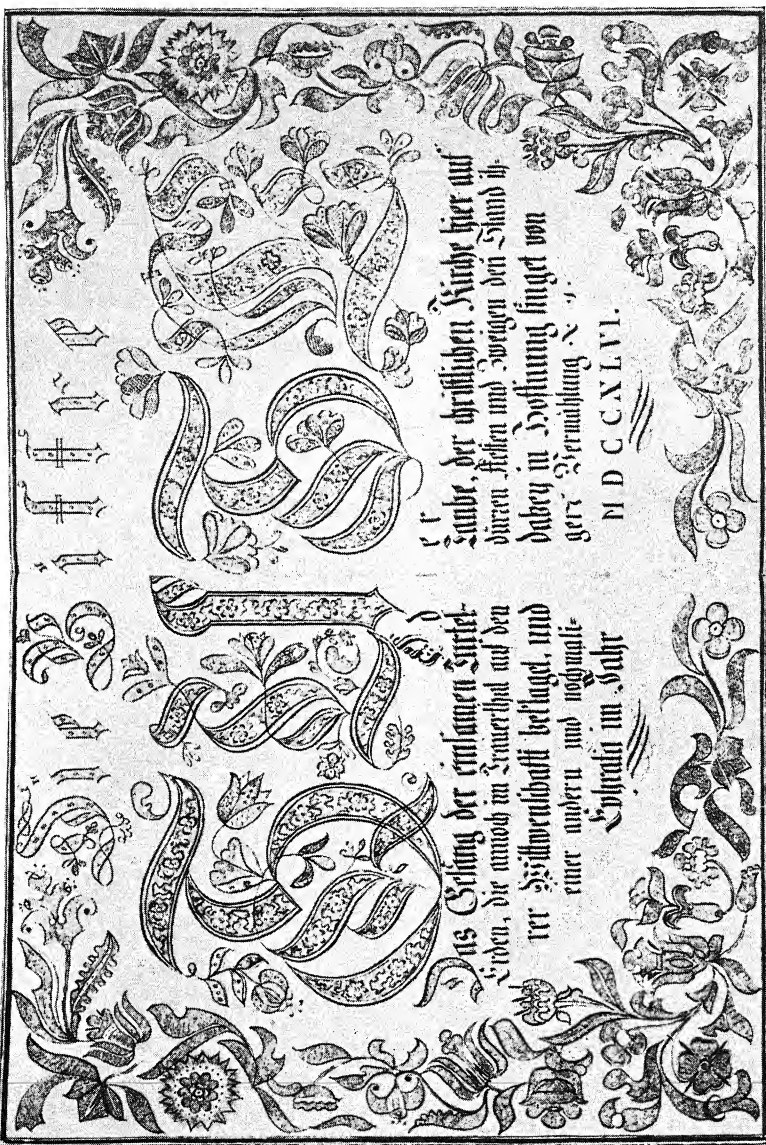 Die Bittre
Gute
Oder
Das Gesäng der einsamen Turtel- Taube, der christlichen Kirche hier auf
Erden, die annoch im Trauerthal auf den dürren Aesten und Zweigen den Stand ih-
rer Wittwenschafft beklaget, und dabey in Hoffnung singet von
einer andern und nochmali= gen Vermählung
Ephrata im Jahr MDCCXLVI.